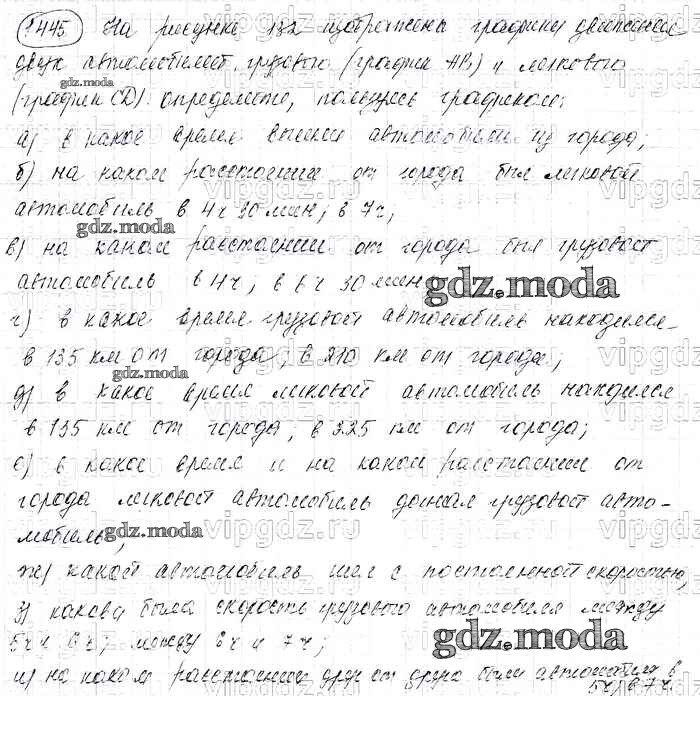 1445. На рисунке 132 изображены графики движения
двух автомобилей, грузового (график АВ) и легкового
gdz.moda
(график СД). Определите, пользуясь графиком:
а) в какое время вышли автомобили из города;
б) на каком расстоянии от города был легковой
автомобиль в 4ч 30 мин; в 7ч;
gdz.moda
в) на каком расстоянии от города был грузовой
автомобиль в 4ч; в 6ч 30 мин
gdz.moda
г) в какое время грузовой автомобиль находился
в 135 км от города; в 210 км от города;
gdz.moda
д) в какое время легковой автомобиль находился
в 135 км от города; в 325 км от города;
е) в какое время и на каком расстоянии от
города легковой автомобиль догнал грузовой авто-
мобиль;
gdz.moda
ж) какой автомобиль шел с постоянной скоростью;
з) какова была скорость грузового автомобиля между
5ч и 6ч; между 6ч и 7ч;
gdz.moda
и) на каком расстоянии друг от друга были автомобили в
5ч, в 7ч.
vipgdz.ru